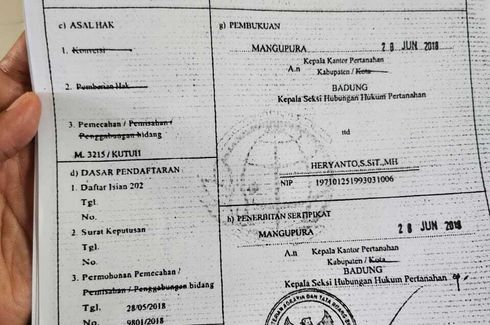 c) ASAL HAK
1. Konversi
2. Pemberian Hak
3. Pemecahan / Pemisahan / Penggabungan bidang
M. 3215 / KUTUH
d) DASAR PENDAFTARAN
1. Daftar Isian 202
Tgl.
No.
2. Surat Keputusan
Tgl.
No.
3. Permohonan Pemecahan /
Pemisahan / Penggabungan bidang
Tgl. 28/05/2018
No. 9801/2018
g) PEMBUKUAN
MANGUPURA 28 JUN 2018
A.n Kepala Kantor Pertanahan
Kabupaten / Kota
BADUNG
Kepala Seksi Hubungan Hukum Pertanahan
ttd
HERYANTO,S.SiT.,MH
NIP 197101251993031006
h) PENERBITAN SERTIPIKAT
MANGUPURA 28 JUN 2018
A.n Kepala Kantor Pertanahan
Kabupaten / Kota
BADUNG
Kepala Seksi Hubungan Hukum Pertanahan